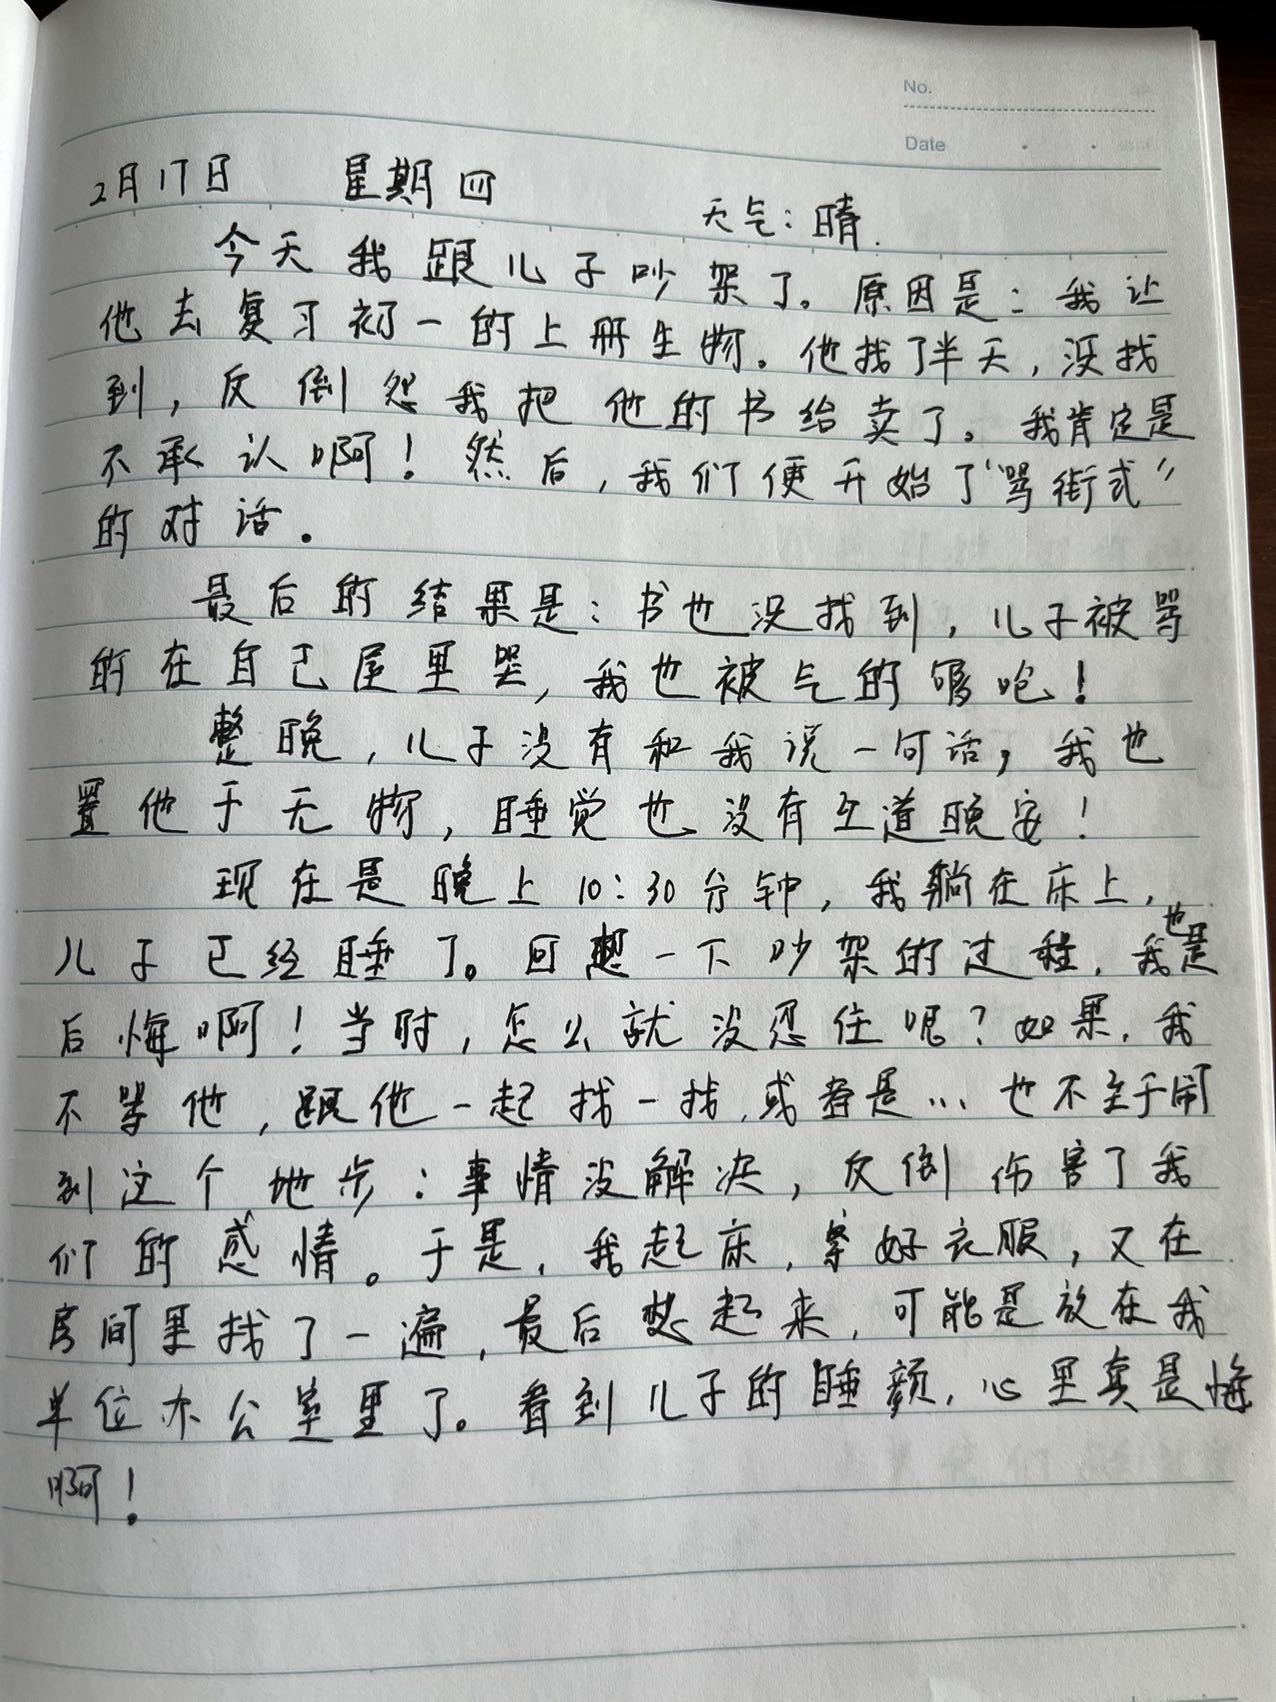 No.
Date
2月17日 星期四
天气：晴.
今天我跟儿子吵架了。原因是：我让
他去复习初一的上册生物。他找了半天，没找
到，反倒怨我把他的书给卖了。我肯定是
不承认啊！然后，我们便开始了“骂街式”
的对话。
最后的结果是：书也没找到，儿子被骂
的在自己屋里哭，我也被气的够呛！
整晚，儿子没有和我说一句话，我也
置他于无物，睡觉也没有互道晚安！
现在是晚上10:30分钟，我躺在床上，
儿子已经睡了。回想一下吵架的过程，我也是
后悔啊！当时，怎么就没忍住呢？如果，我
不骂他，跟他一起找一找，或者是…也不至于闹
到这个地步：事情没解决，反倒伤害了我
们的感情。于是，我起床，穿好衣服，又在
房间里找了一遍，最后想起来，可能是放在我
单位办公室里了。看到儿子的睡颜，心里真是悔
啊！